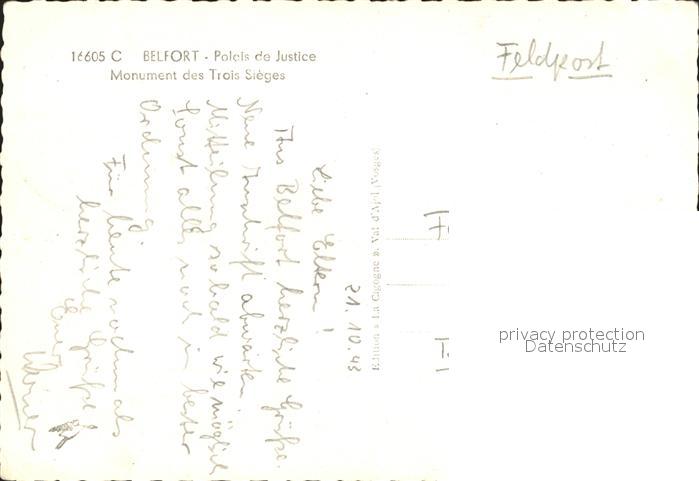 16605 C BELFORT - Palais de Justice
Monument des Trois Sièges
Feldpost
21.10.43
Liebe Eltern!
Aus Belfort herzliche Grüße.
Neue Anschrift abwarten.
Mitteilung sobald wie möglich
Sonst alles noch in bester
Ordnung.
Für heute nochmals
herzliche Grüße
Euer
Werner
Edition « La Cigogne », Val d'Ajol (Vosges)
privacy protection
Datenschutz